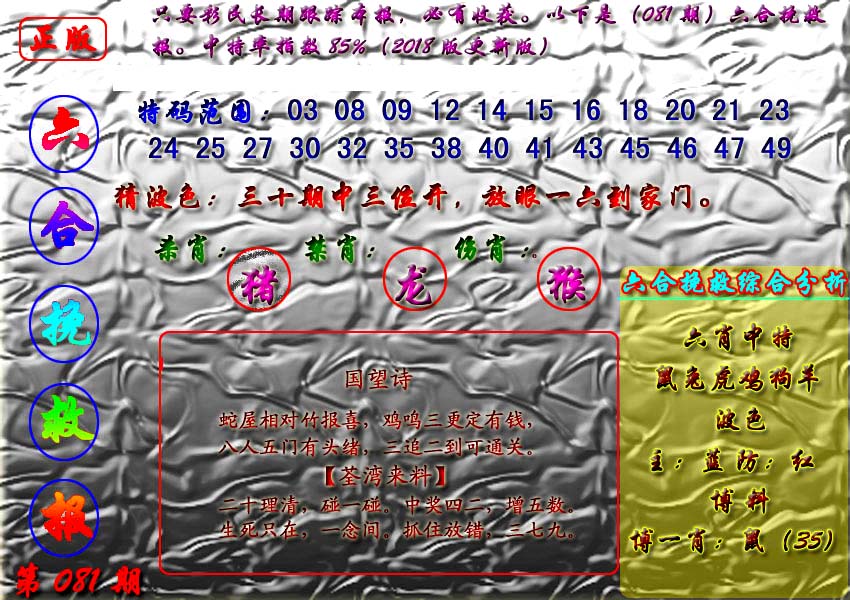 正版
只要彩民长期跟踪本报，必有收获。以下是（081期）六合挽救
报。中特率指数85%（2018版更新版）
六合挽救报
第081期
特码范围：03 08 09 12 14 15 16 18 20 21 23
24 25 27 30 32 35 38 40 41 43 45 46 47 49
猜波色：三十期中三位开，放眼一六到家门。
杀肖：猪 禁肖：龙 伤肖：猴。
国望诗
蛇屋相对竹报喜，鸡鸣三更定有钱，
八人五门有头绪，三追二到可通关。
【荃湾来料】
二十理清，碰一碰。中奖四二，增五数。
生死只在，一念间。抓住放错，三七九。
六合挽救综合分析
六肖中特
鼠兔虎鸡狗羊
波色
主：蓝防：红
博料
博一肖：鼠（35）